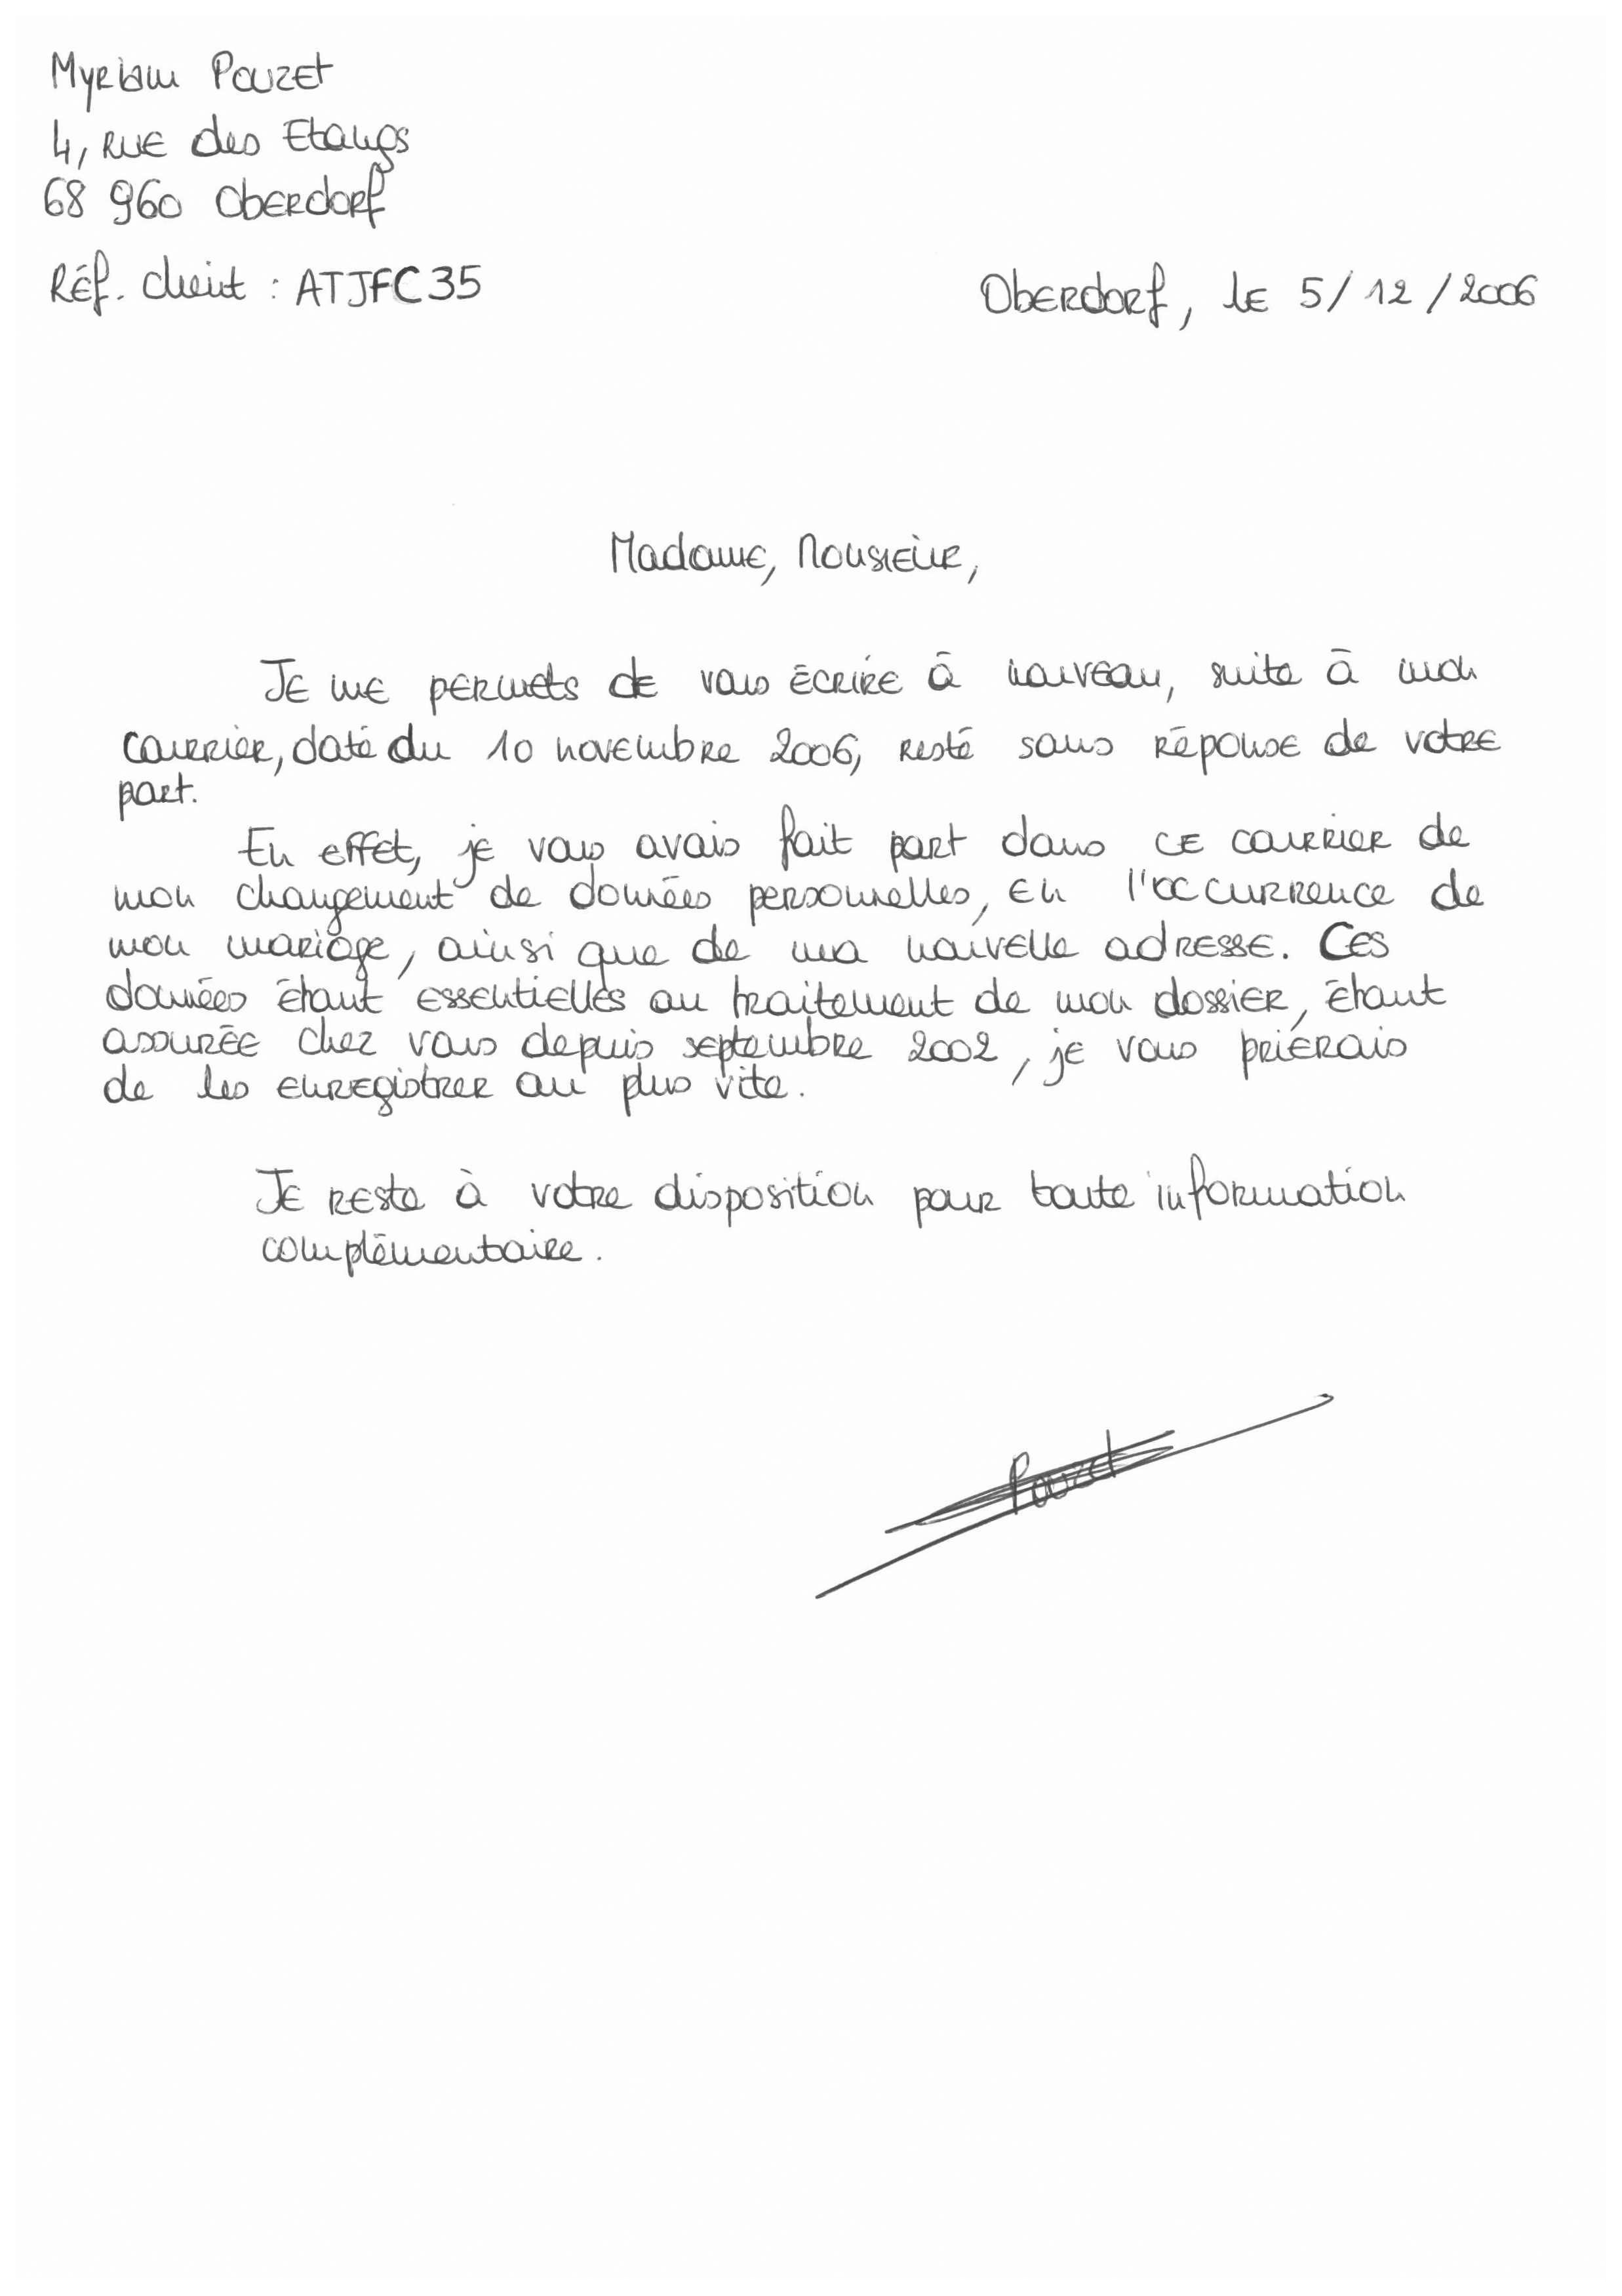 Myriam Pouzet
4, rue des Etangs
68 960 Oberdorf
Réf. client : ATJFC35
Oberdorf, le 5/12/2006
Madame, Monsieur,
Je me permets de vous écrire à nouveau, suite à mon
courrier, daté du 10 novembre 2006, resté sans réponse de votre
part.
En effet, je vous avais fait part dans ce courrier de
mon changement de données personnelles, en l'occurrence de
mon mariage, ainsi que de ma nouvelle adresse. Ces
données étant essentielles au traitement de mon dossier, étant
assurée chez vous depuis septembre 2002, je vous prierais
de les enregistrer au plus vite.
Je reste à votre disposition pour toute information
complémentaire.
Pouzet